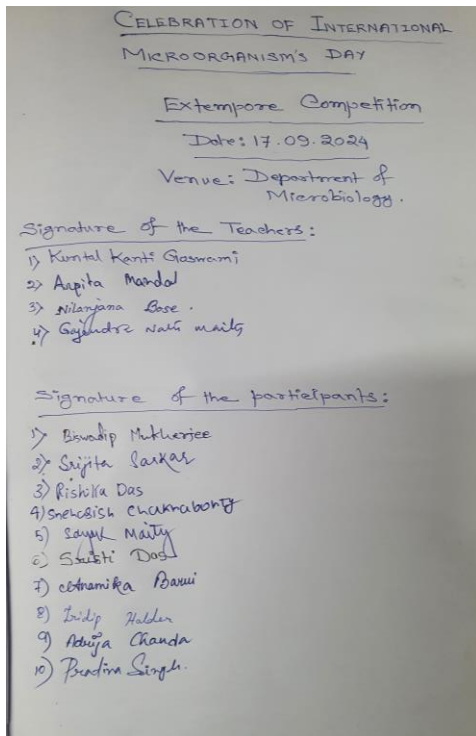 CELEBRATION OF INTERNATIONAL
MICROORGANISM'S DAY
Extempore Competition
Date: 17.09.2024
Venue: Department of
Microbiology.
Signature of the Teachers:
1) Kuntal Kanti Goswami
2) Arpita Mandal
3) Nilanjana Bose.
4) Gajendra Nath Maity
Signature of the participants:
1) Biswadip Mukherjee
2) Srijita Sarkar
3) Rishika Das
4) Snehasish Chakraborty
5) Maity
6) Sristi Das
7) Anamika Barui
8) Iridip Halder
9) Adrija Chanda
10) Singh.